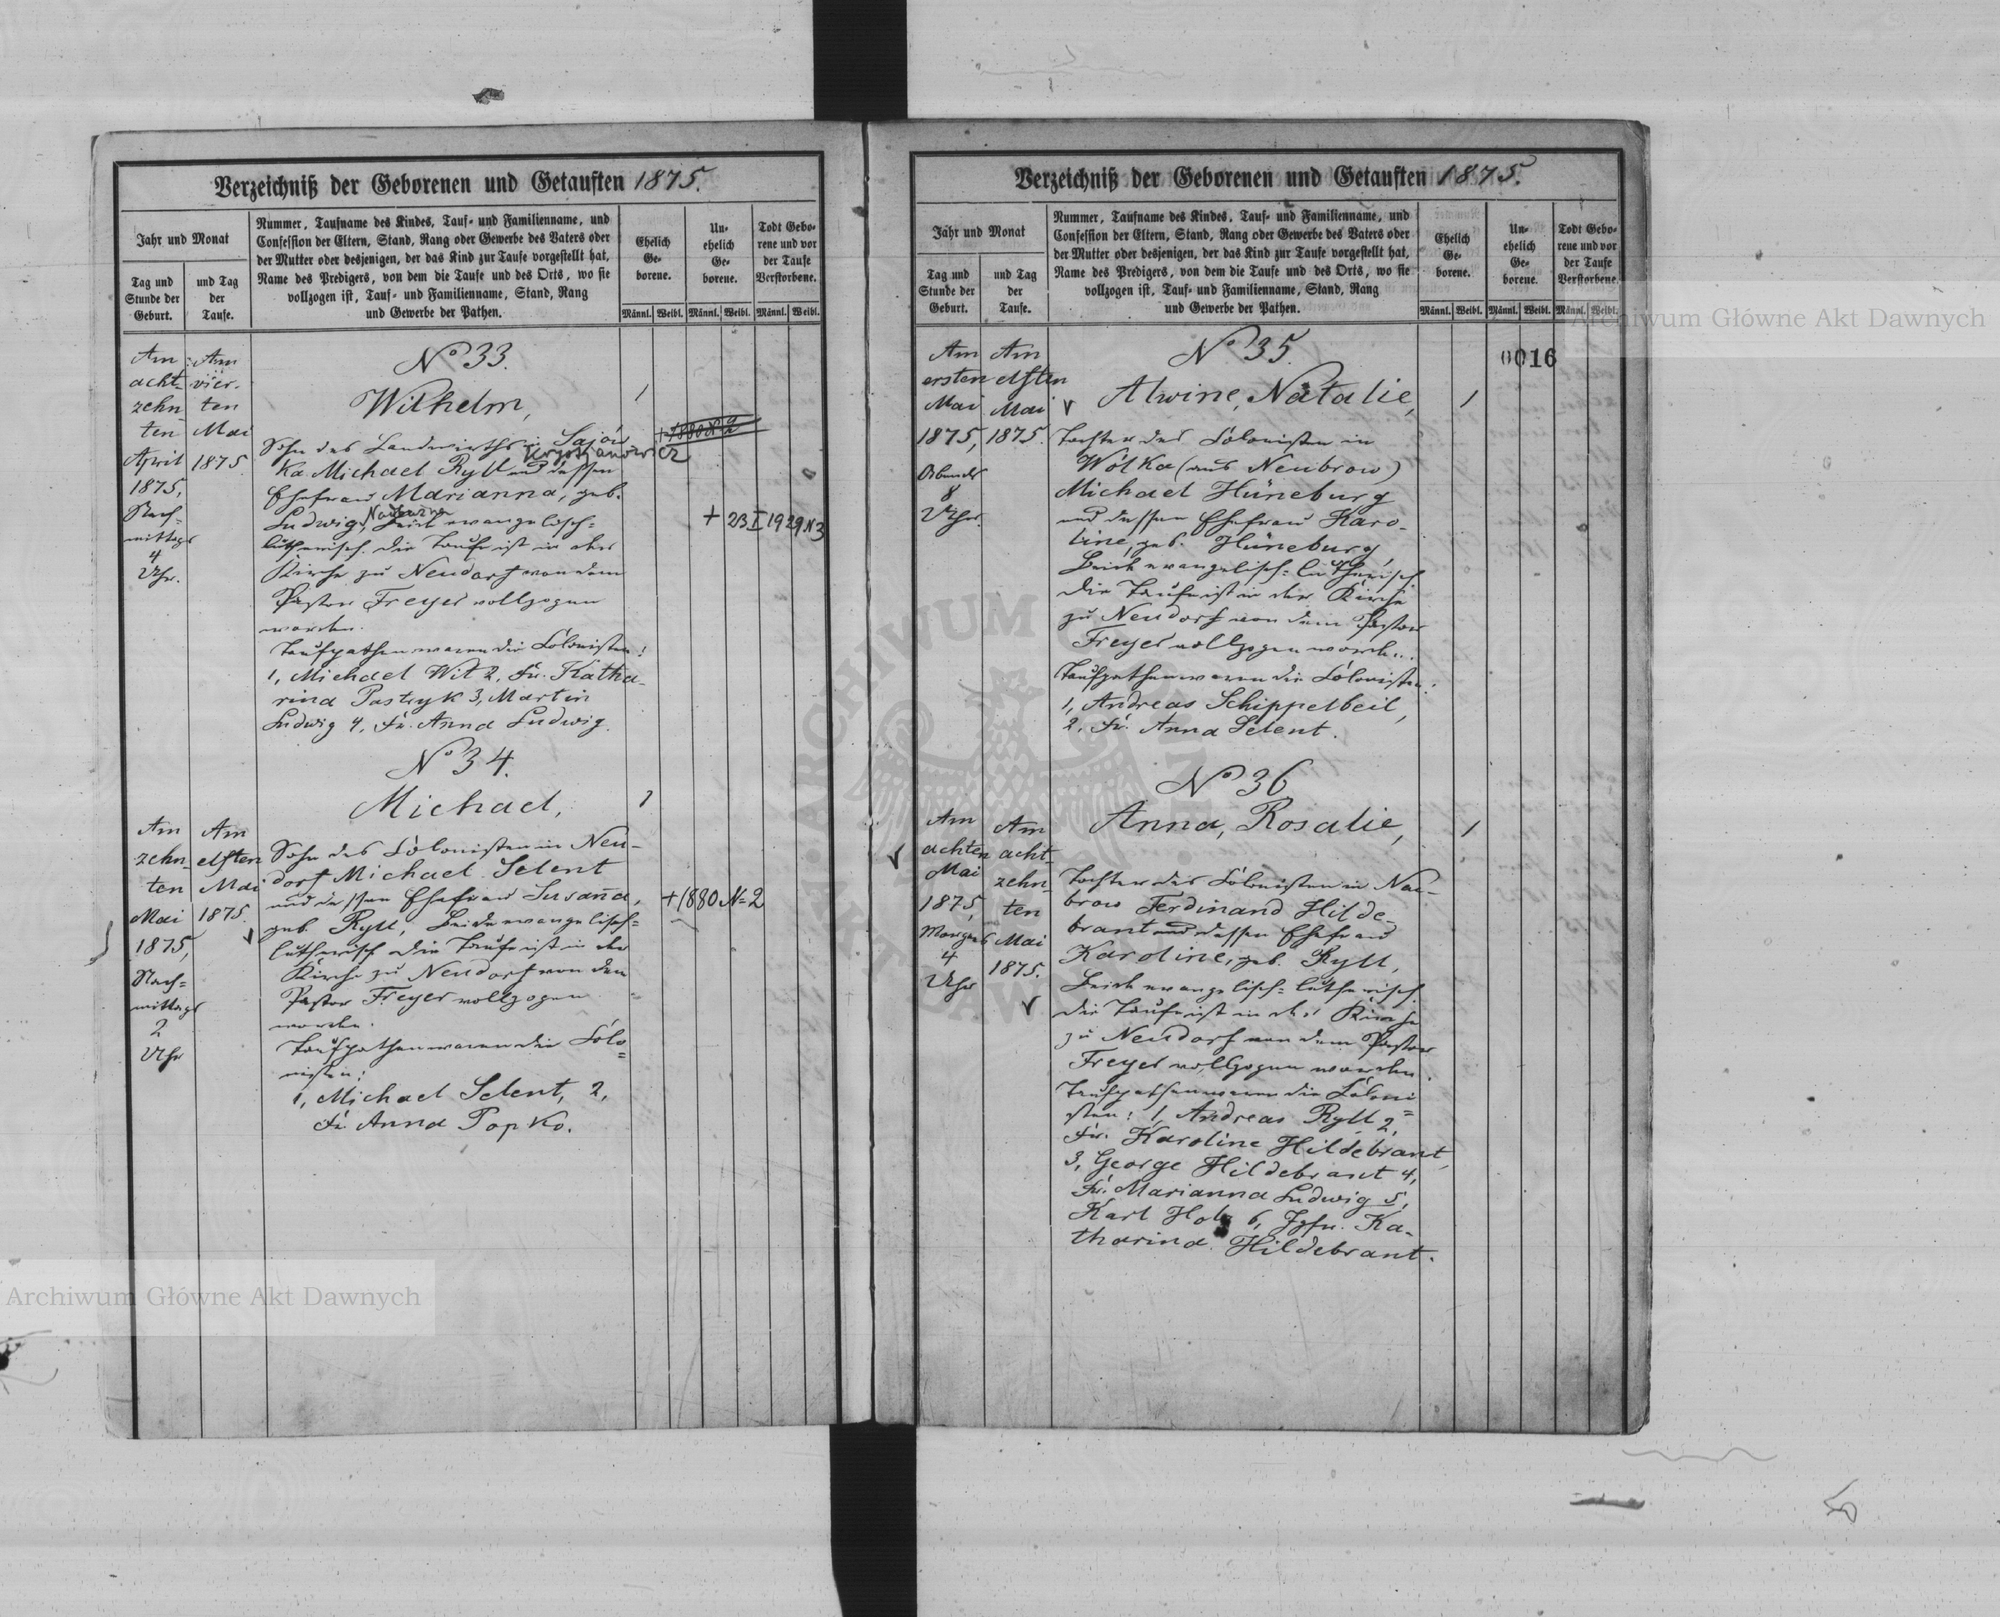 Verzeichniß der Geborenen und Getauften 1875.
Jahr und Monat
Tag und
Stunde der
Geburt.
und Tag
der
Taufe.
Nummer, Taufname des Kindes, Tauf- und Familienname, und
Confession der Eltern, Stand, Rang oder Gewerbe des Vaters oder
der Mutter oder desjenigen, der das Kind zur Taufe vorgestellt hat,
Name des Predigers, von dem die Taufe und des Orts, wo sie
vollzogen ist, Tauf- und Familienname, Stand, Rang
und Gewerbe der Pathen.
Ehelich
Ge-
borene.
Un-
ehelich
Ge-
borene.
Todt Gebo-
rene und vor
der Taufe
Verstorbene.
Männl. Weibl. Männl. Weibl. Männl. Weibl.
Am
acht-
zehn
ten
April
1875,
Nach-
mittags
4
Uhr.
Am
vier-
ten
Mai
1875.
No 33.
Wilhelm,
1
Sohn des Landwirths in Sajów
ka Michael Ryll und dessen
Ehefrau Marianna, geb.
Ludwig, Beide evangelisch-
lutherisch. Die Taufe ist in der
Kirche zu Neudorf von dem
Pastor Freyer vollzogen
worden.
Taufpathen waren die Colonisten:
1, Michael Wit 2, Fr. Katha-
rina Pastryk 3, Martin
Ludwig 4, Fr. Anna Ludwig.
+ 1880 N 2
+ 23 I 1929 N 3
No 34.
Michael,
1
Am
zehn-
ten
Mai
1875,
Nach-
mittags
2
Uhr
Am
elften
Mai
1875.
Sohn des Colonisten in Neu-
dorf Michael Selent
und dessen Ehefrau Susanna,
geb. Ryll, Beide evangelisch-
lutherisch. Die Taufe ist in der
Kirche zu Neudorf von dem
Pastor Freyer vollzogen
worden.
Taufpathen waren die Colo-
nisten:
1, Michael Selent, 2,
Fr. Anna Popko.
+ 1880 N= 2
Verzeichniß der Geborenen und Getauften 1875.
Jahr und Monat
Tag und
Stunde der
Geburt.
und Tag
der
Taufe.
Nummer, Taufname des Kindes, Tauf- und Familienname, und
Confession der Eltern, Stand, Rang oder Gewerbe des Vaters oder
der Mutter oder desjenigen, der das Kind zur Taufe vorgestellt hat,
Name des Predigers, von dem die Taufe und des Orts, wo sie
vollzogen ist, Tauf- und Familienname, Stand, Rang
und Gewerbe der Pathen.
Ehelich
Ge-
borene.
Un-
ehelich
Ge-
borene.
Todt Gebo-
rene und vor
der Taufe
Verstorbene.
Männl. Weibl. Männl. Weibl. Männl. Weibl.
0016
Am
ersten
Mai
1875,
Abends
8
Uhr.
Am
elften
Mai
1875.
No 35.
Alwine, Natalie,
1
Tochter des Colonisten in
Wólka (aus Neubrow)
Michael Hüneburg
und dessen Ehefrau Karo-
line, geb. Hüneburg,
Beide evangelisch-lutherisch
Die Taufe ist in der Kirche
zu Neudorf von dem Pastor
Freyer vollzogen worden.
Taufpathen waren die Colonisten:
1, Andreas Schippelbeil,
2, Fr. Anna Selent.
No 36
Anna, Rosalie,
1
Am
achten
Mai
1875,
Morgens
4
Uhr
Am
acht-
zehn-
ten
Mai
1875.
Tochter des Colonisten in Neu-
brow Ferdinand Hilde-
brant und dessen Ehefrau
Karoline, geb. Ryll,
Beide evangelisch-lutherisch.
Die Taufe ist in der Kirche
zu Neudorf von dem Pastor
Freyer vollzogen worden.
Taufpathen waren die Coloni-
sten: 1, Andreas Ryll 2,
Fr. Karoline Hildebrant,
3, George Hildebrant 4,
Fr. Marianna Ludwig 5,
Karl Holz 6, Jgfr. Ka-
tharina Hildebrant.
Archiwum Główne Akt Dawnych
Archiwum Główne Akt Dawnych